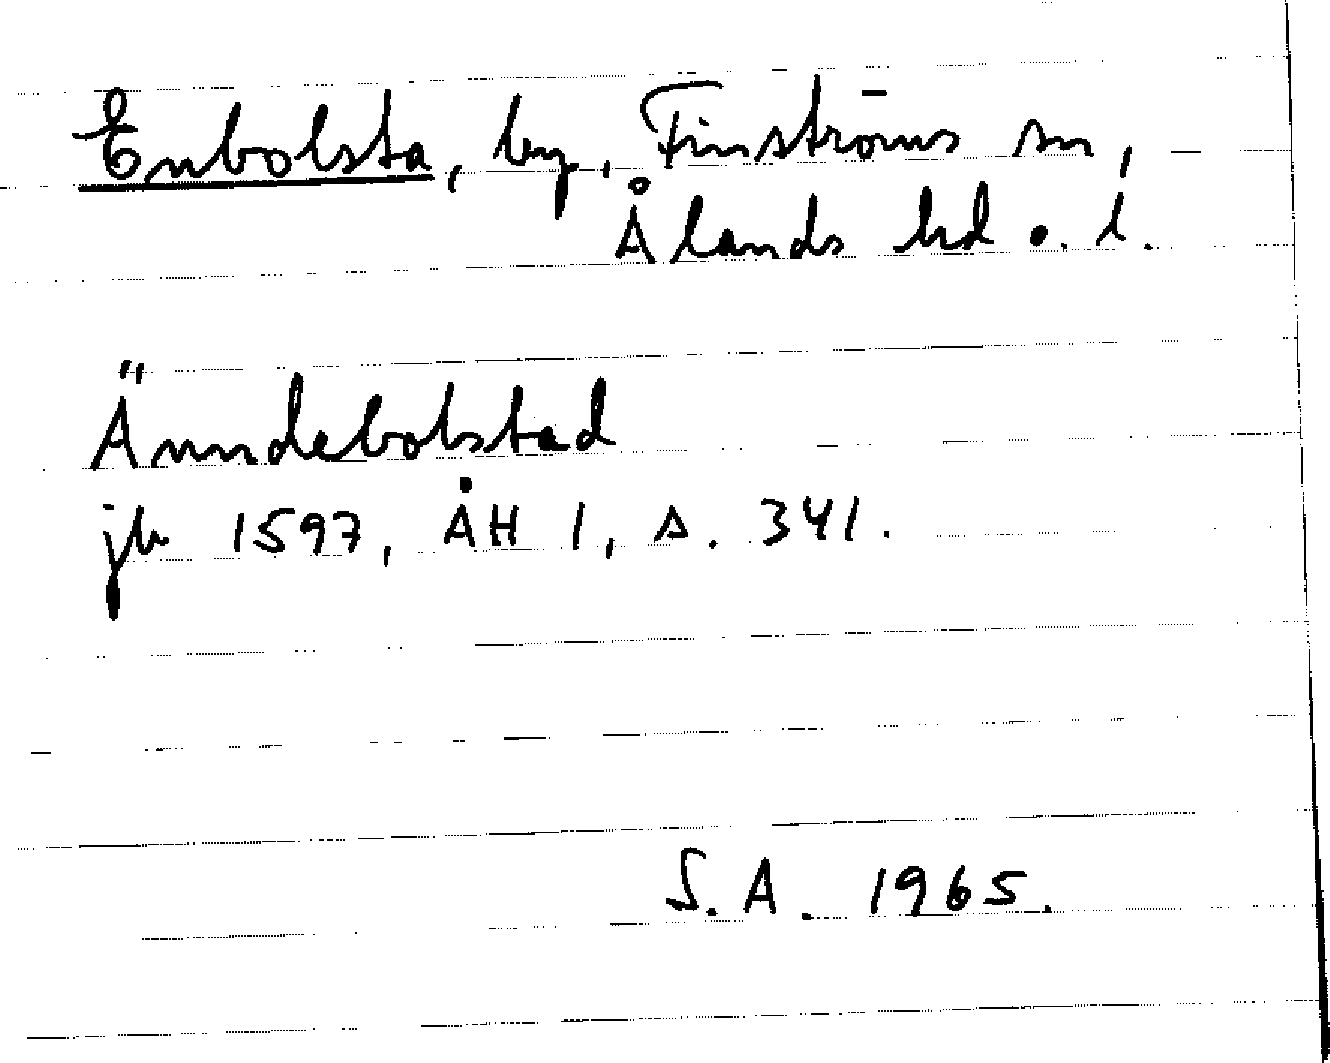 Enbolsta, by, Finströms sn,
Ålands hd o. l.
Änndebolstad
jb 1597, ÅH 1, s. 341.
S.A. 1965.